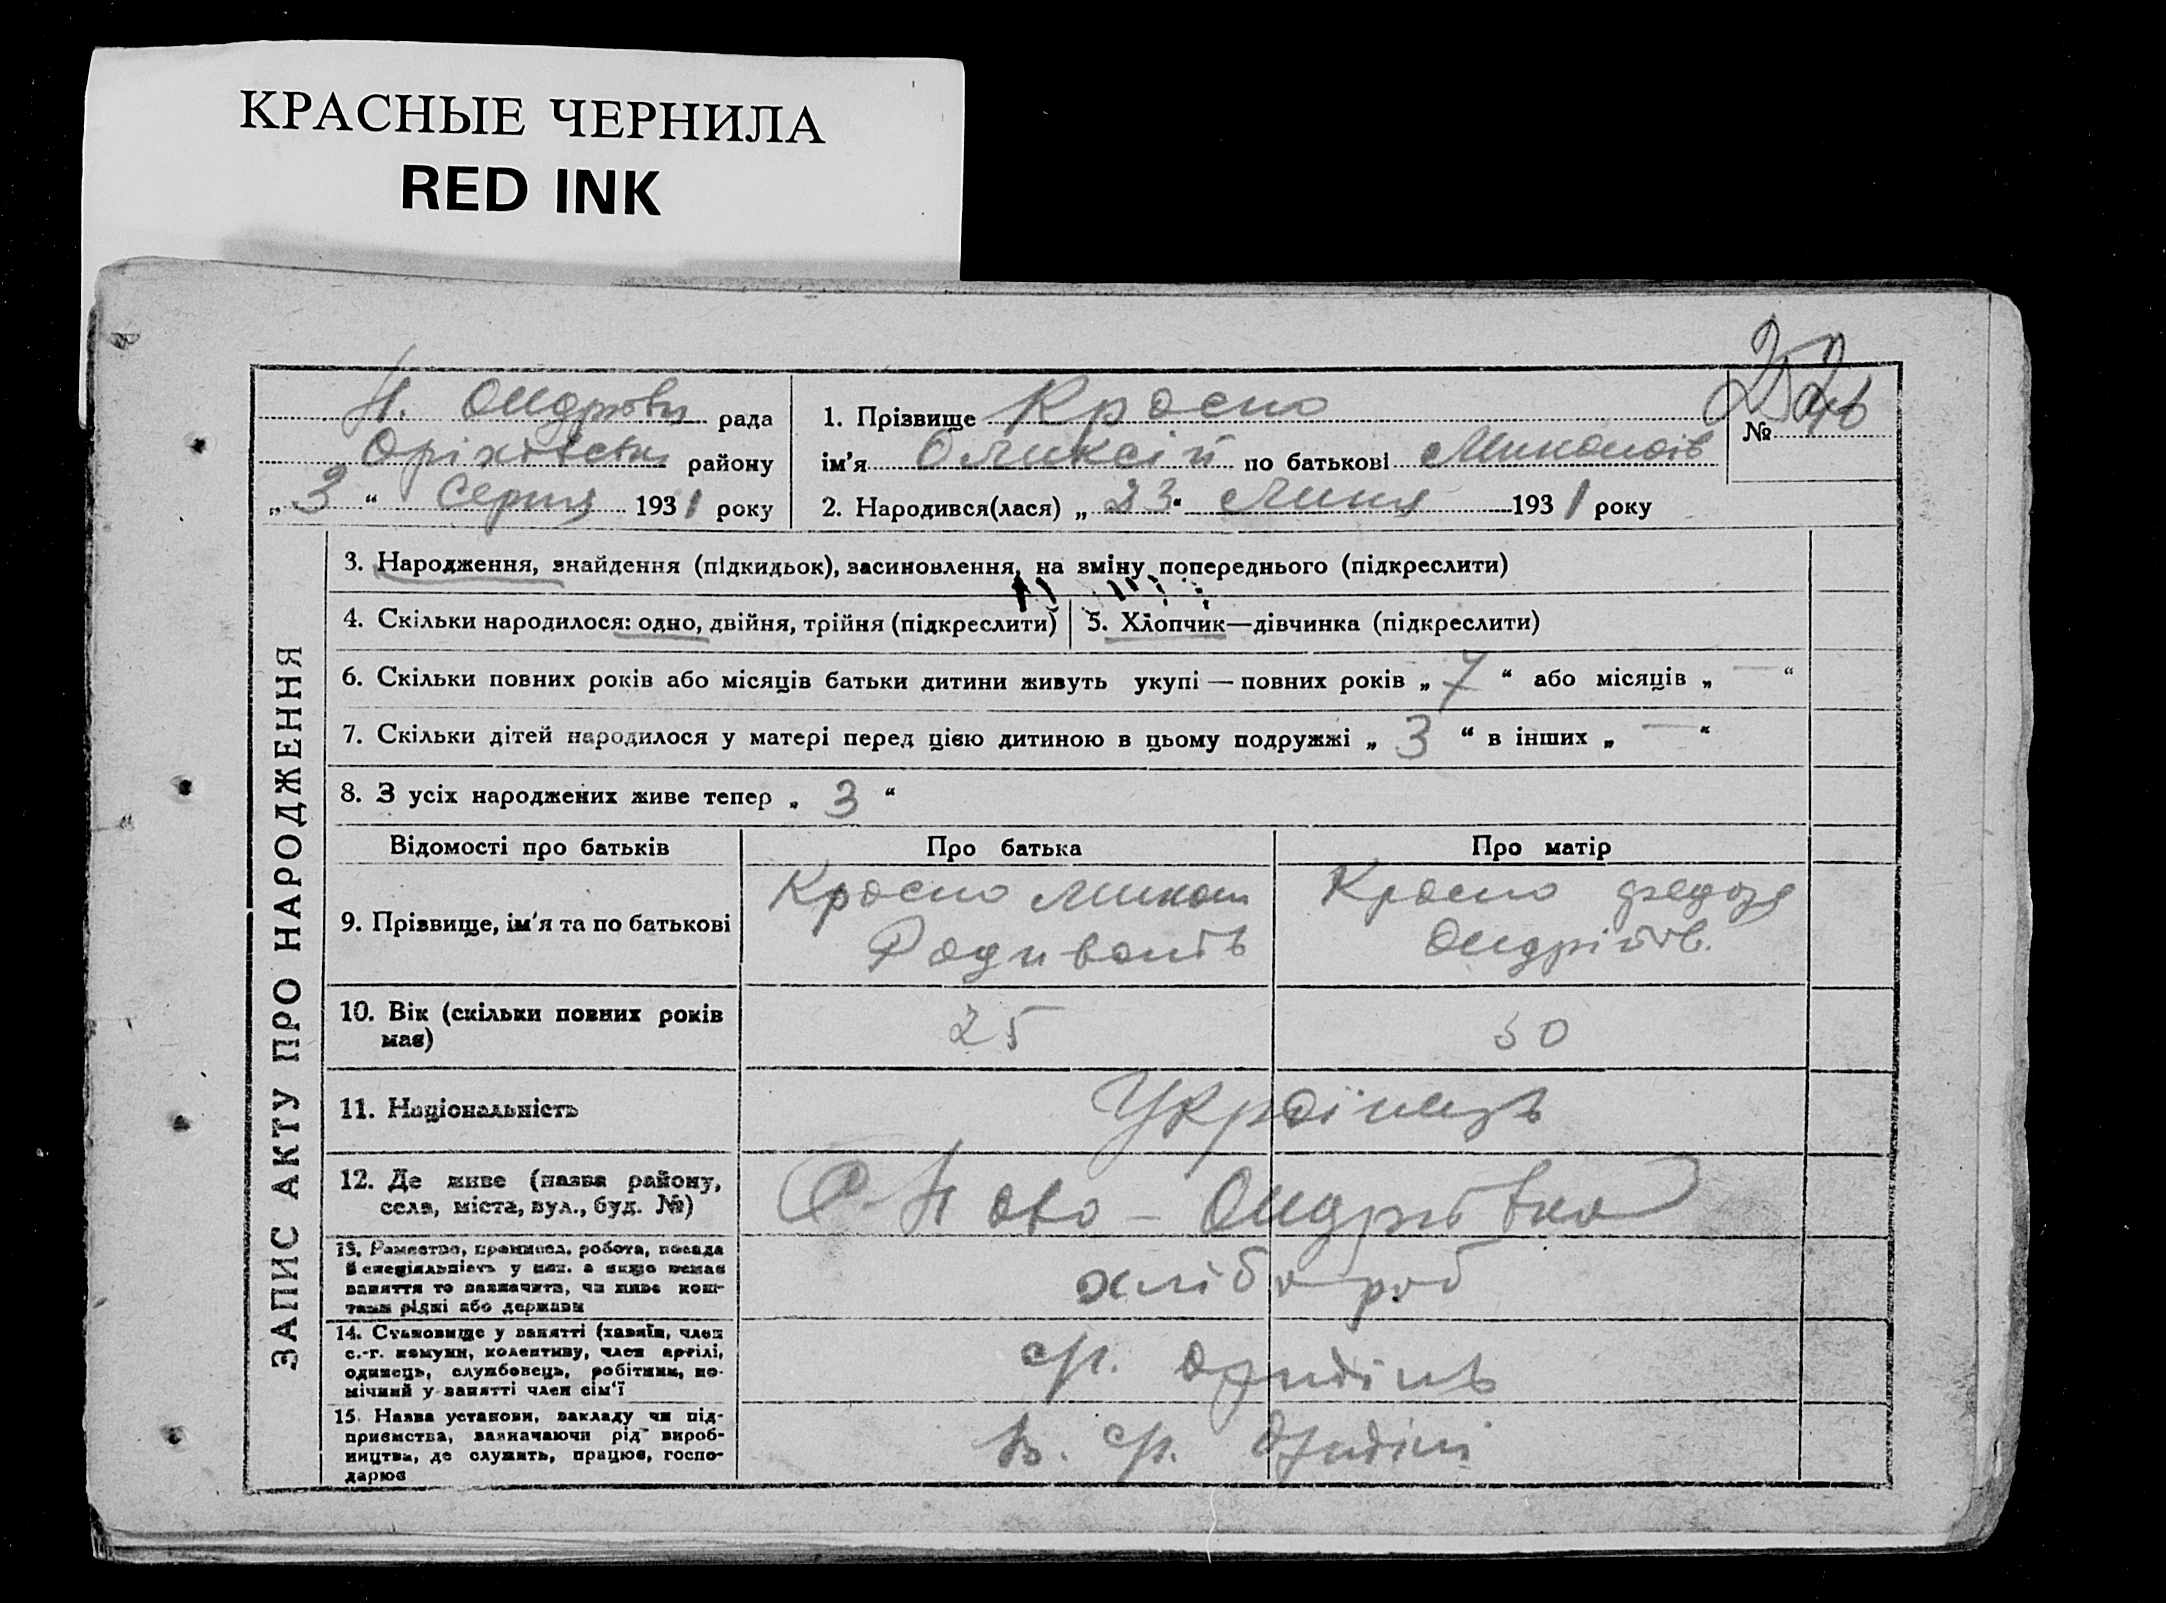 КРАСНЫЕ ЧЕРНИЛА
RED INK
252
Н. Ондрювка рада
Оріхівськ району
„ 3 “ Серпня 1931 року
1. Прізвище Красно
ім'я Оликсій по батькові Миколаїв
2. Народився(лася) „ 23 “ Липня 1931 року
№
ЗАПИС АКТУ ПРО НАРОДЖЕННЯ
3. Народження, знайдення (підкидьок), засиновлення, на зміну попереднього (підкреслити)
4. Скільки народилося: одно, двійня, трійня (підкреслити) 5. Хлопчик—дівчинка (підкреслити)
6. Скільки повних років або місяців батьки дитини живуть укупі — повних років „ 7 “ або місяців „ — “
7. Скільки дітей народилося у матері перед цією дитиною в цьому подружжі „ 3 “ в інших „ — “
8. З усіх народжених живе тепер „ 3 “
Відомості про батьків Про батька Про матір
9. Прізвище, ім'я та по батькові
Красно Микол
Родивоніъ
Красно Федося
Ондріівв.
10. Вік (скільки повних років
має)
25 30
11. Національність Українцъ
12. Де живе (назва району,
села, міста, вул., буд. №)
С. Ново-Ондрювка
13. Рамество, промисел, робота, посада
й спеціяльність у них, а якщо немає
заняття то зазначити, чи живе кош-
тами рідні або держави
хлібороб
14. Становище у занятті (хазяїн, член
с.-г. комуни, колективу, член артілі,
одинець, службовець, робітник, по-
мічний у занятті член сім'ї
ср.
15. Назва установи, закладу чи під-
приємства, зазначаючи рід вироб-
ництва, де служить, працює, госпо-
дарює
в. ср.